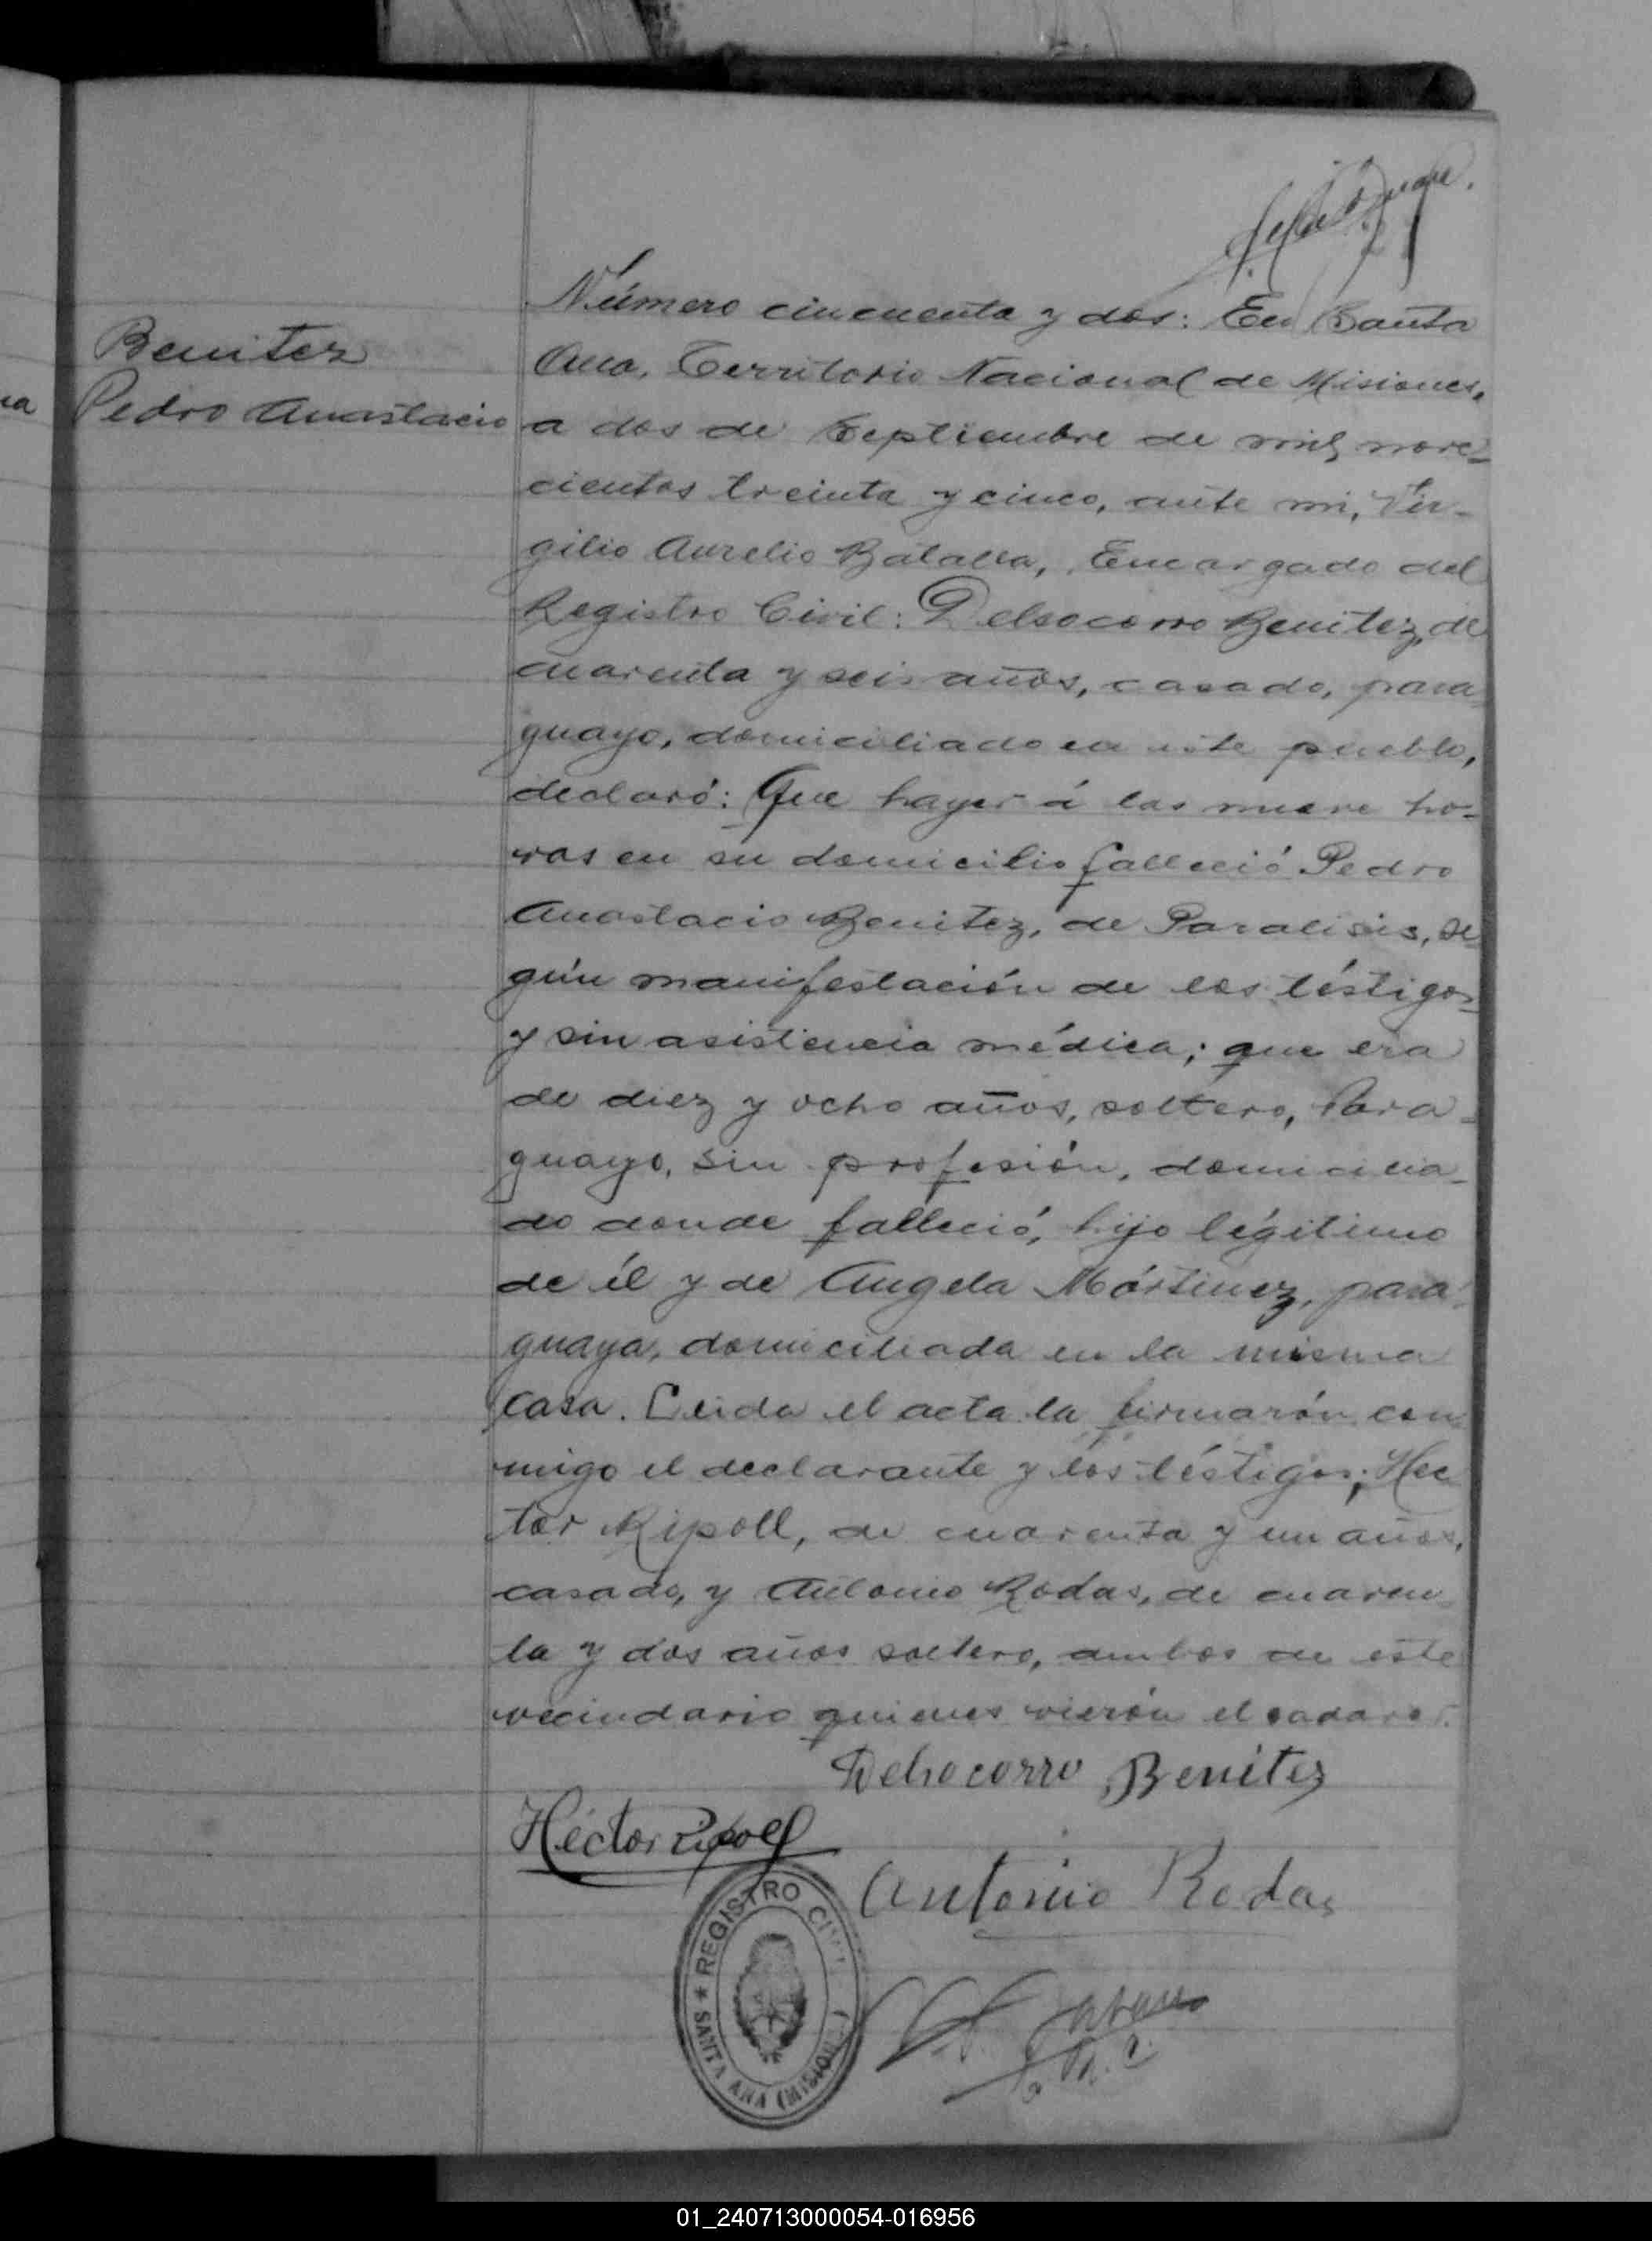 Número cincuenta y dos: En Santa
Benitez
Pedro Anastacio
Ana, Territorio Nacional de Misiones,
a dos de Septiembre de mil nove-
cientos treinta y cinco, ante mi, Vir-
gilio Aurelio Batalla, Encargado del
Registro Civil: Delsocorro Benitez, de
cuarenta y seis años, casado, para
guayo, domiciliado en este pueblo,
declaró: Que hayer á las nueve ho-
ras en su domicilio falleció Pedro
Anastacio Benitez, de Paralisis, se
gún manifestación de los téstigos
y sin asistencia médica; que era
de diez y ocho años, soltero, Para-
guayo, sin profesión, domicilia-
do donde falleció, hijo légitimo
de él y de Angela Mártinez, para-
guaya, domiciliada en la misma
casa. Leida el acta la firmarón con
migo el declarante y los téstigos; Hec
tor Ripoll, de cuarenta y un años,
casado, y Antonio Rodas, de cuaren-
ta y dos años soltero, ambos de este
vecindario quienes vierón el cadaver.
Delsocorro Benitez
Héctor Ripoll
Antonio Rodas
REGISTRO CIVIL
★ SANTA ANA (MISIONES)
01_240713000054-016956